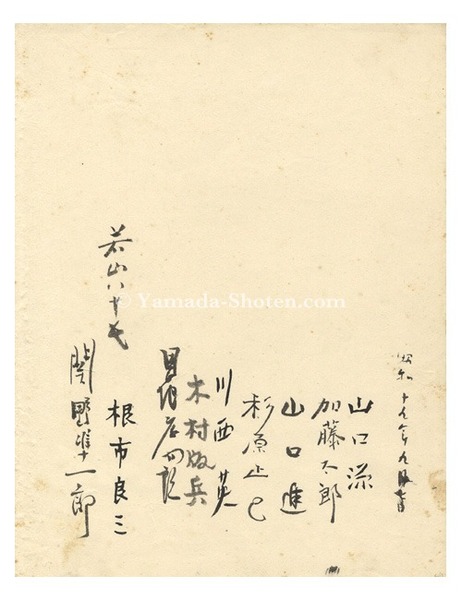 昭和十九年九月
山口源
加藤太郎
山口進
杉原正巳
川西英
木村
恩地孝四郎
若山八十氏
根市良三
関野凖一郎
© Yamada-Shoten.com